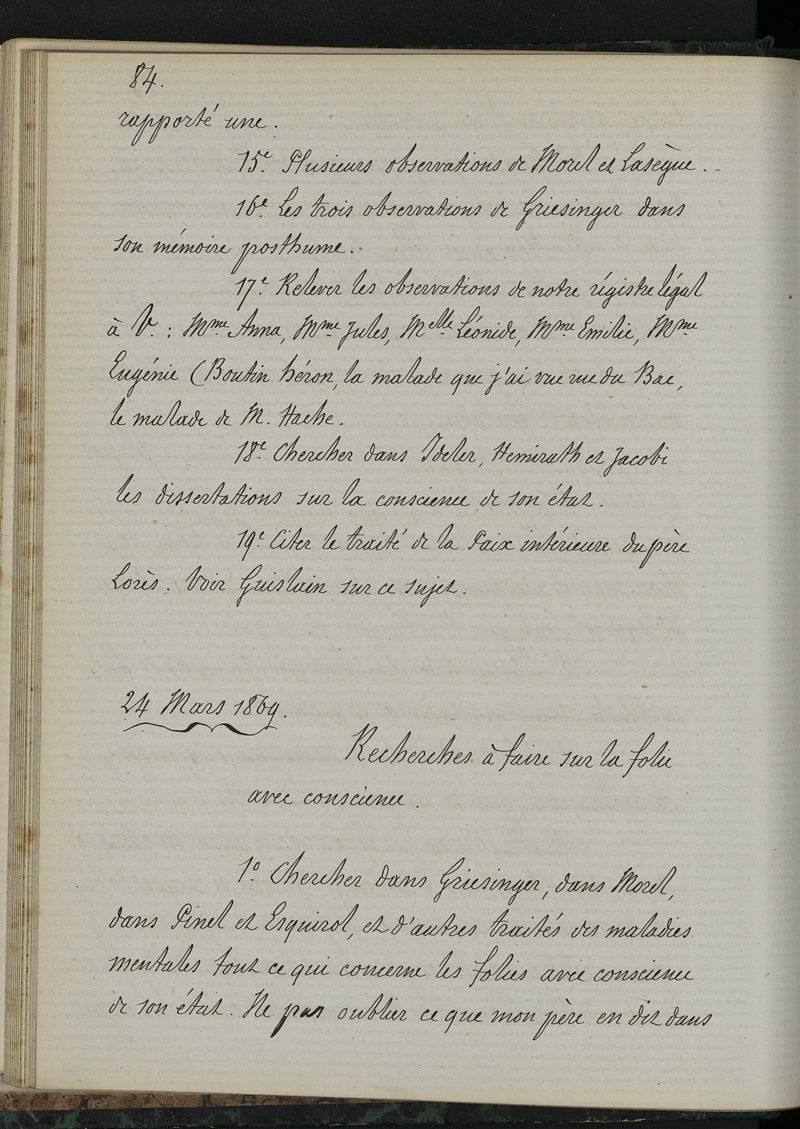 84.
rapporté une.
15e. Plusieurs observations de Morel et Lasègue.
16e. Les trois observations de Griesinger dans
son mémoire posthume.
17e. Relever les observations de notre régistre légal
à V. : Mme Anna, Mme Jules, Melle Léonide, Mme Emilie, Mme
Eugénie (Boutin héron, la malade que j'ai vue rue du Bac,
le malade de M. Hache.
18e. Chercher dans Ideler, Hemirath et Jacobi
les dissertations sur la conscience de son état.
19e. Citer le traité de la Paix intérieure du père
Lorès. Voir Guislain sur ce sujet.
24 Mars 1869.
Recherches à faire sur la folie
avec conscience.
1o. Chercher dans Griesinger, dans Morel,
dans Pinel et Esquirol, et d'autres traités des maladies
mentales tout ce qui concerne les folies avec conscience
de son état. Ne pas oublier ce que mon père en dit dans